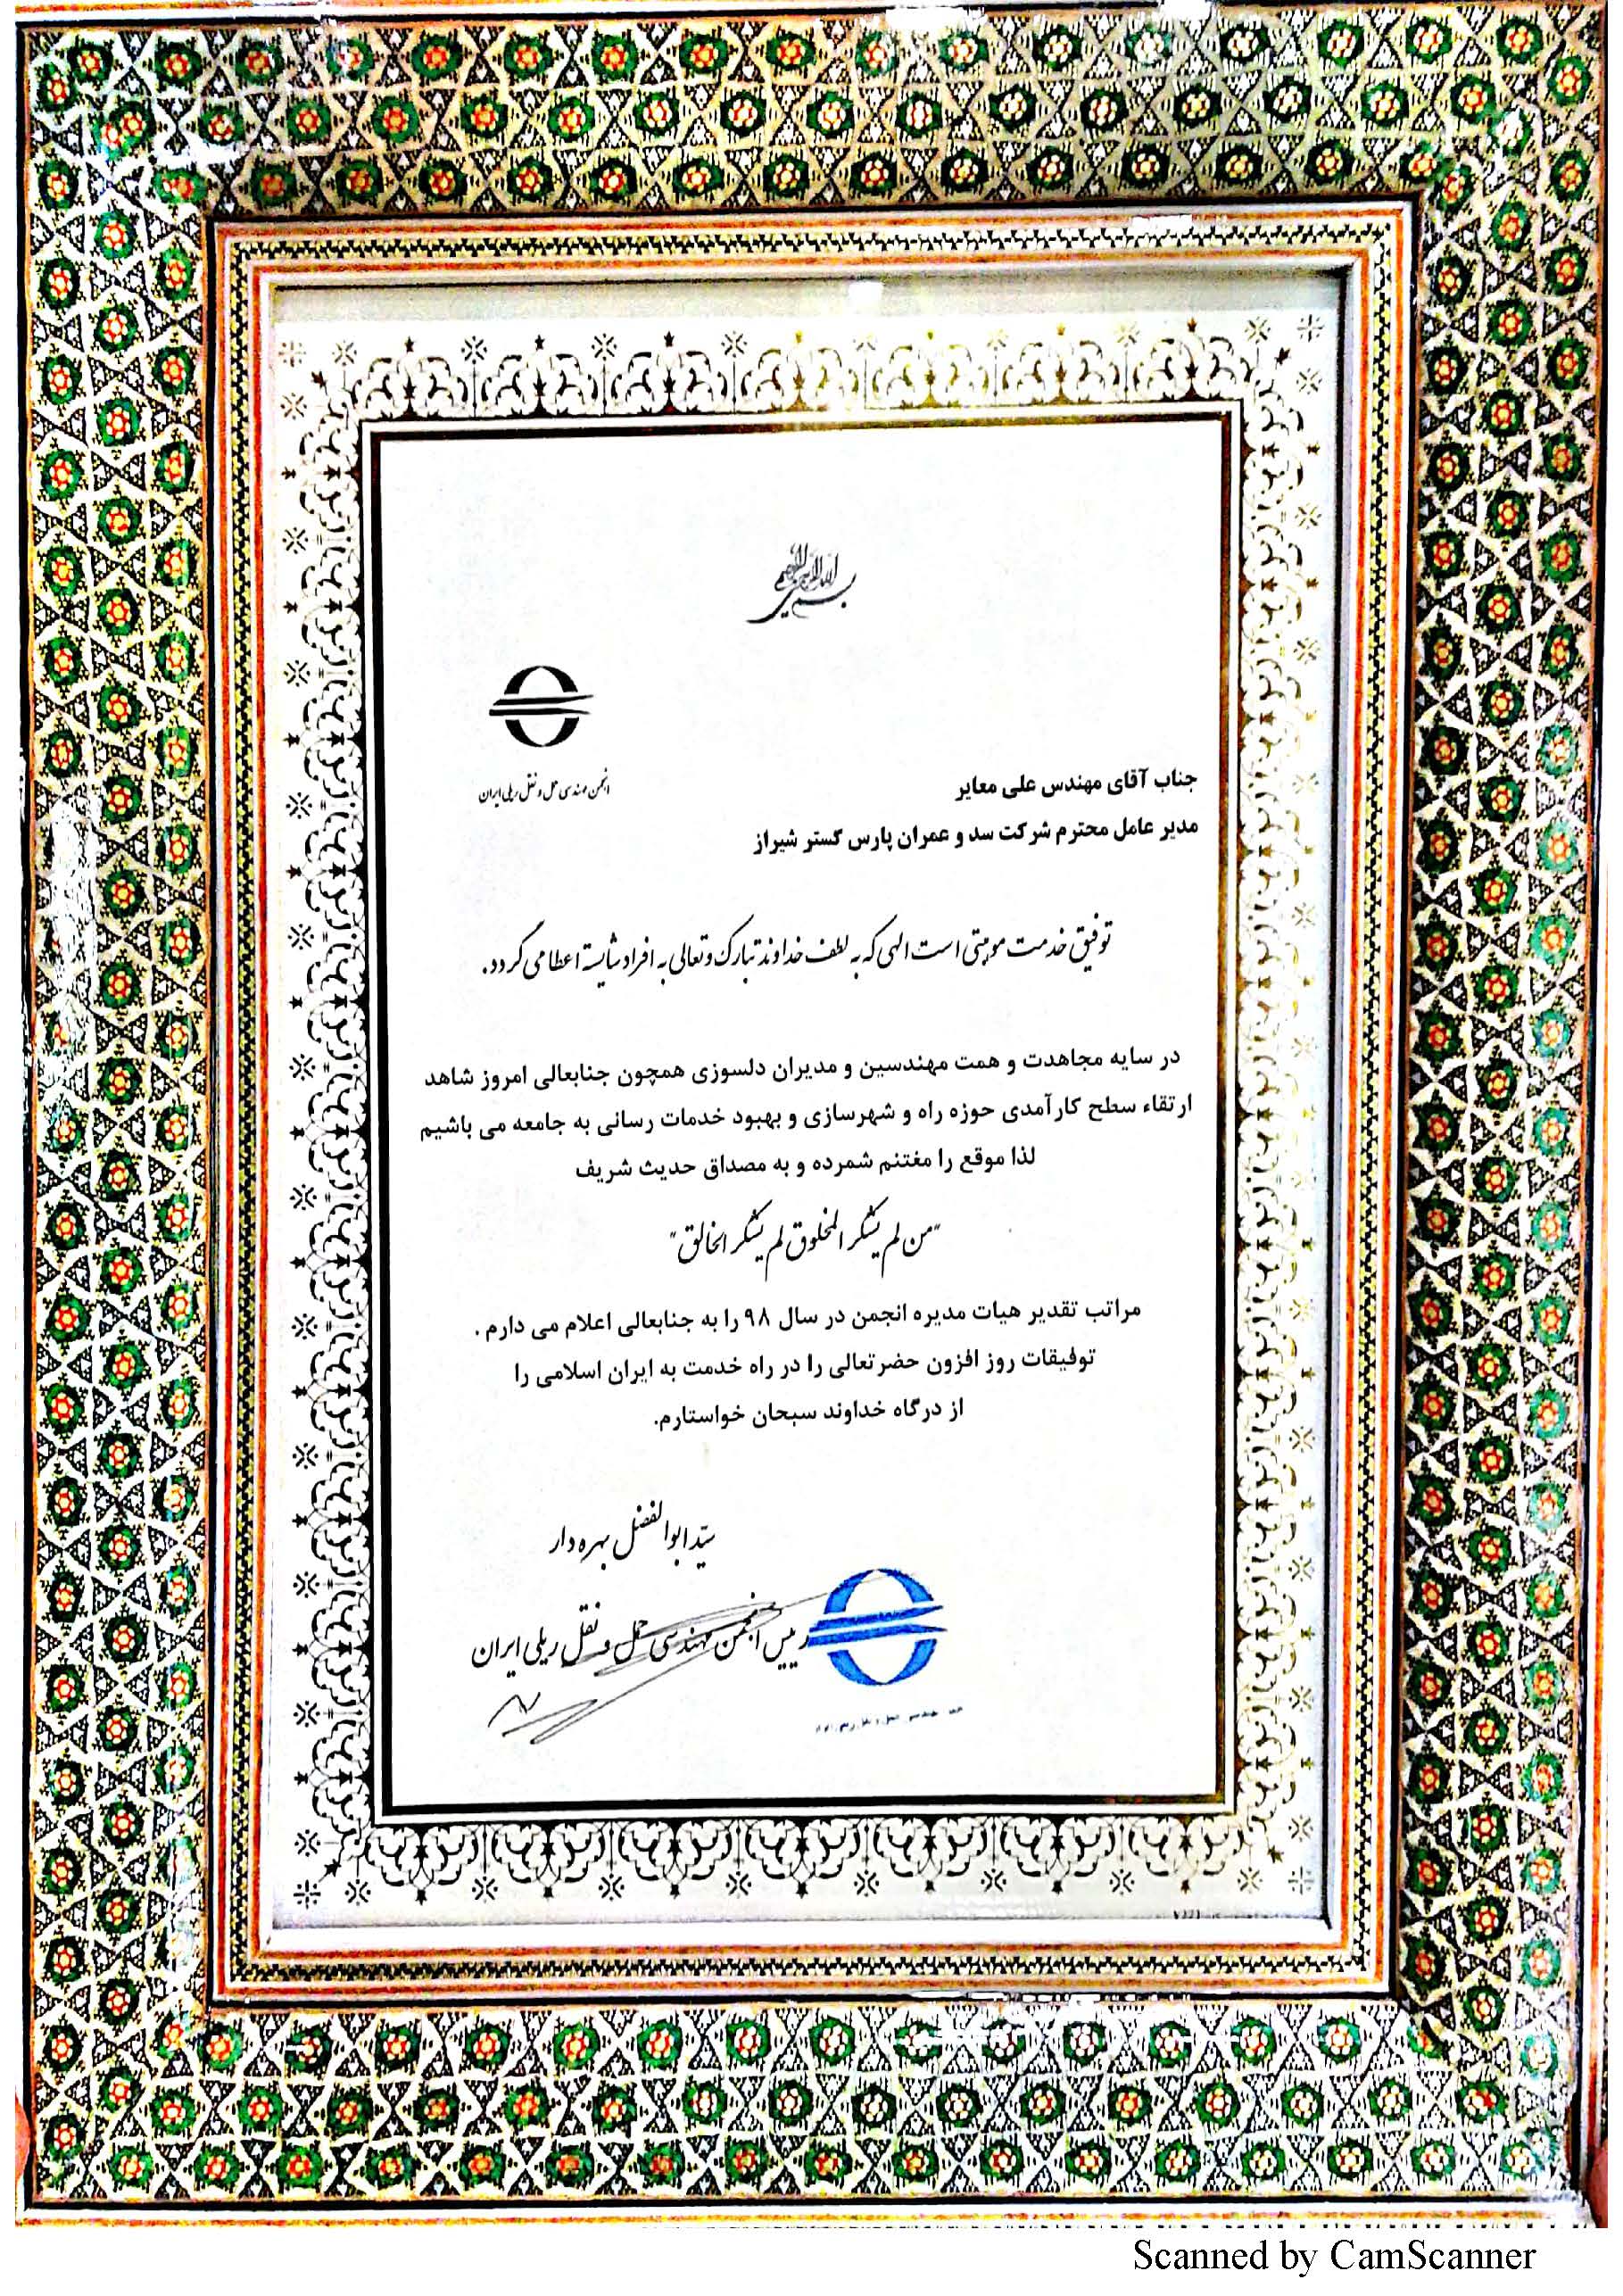 بسم الله الرحمن الرحیم
انجمن مهندسی حمل و نقل ریلی ایران
جناب آقای مهندس علی معایر
مدیر عامل محترم شرکت سد و عمران پارس گستر شیراز
توفیق خدمت موهبتی است الهی که به لطف خداوند تبارک و تعالی به افراد شایسته اعطا می گردد.
در سایه مجاهدت و همت مهندسین و مدیران دلسوزی همچون جنابعالی امروز شاهد
ارتقاء سطح کارآمدی حوزه راه و شهرسازی و بهبود خدمات رسانی به جامعه می باشیم
لذا موقع را مغتنم شمرده و به مصداق حدیث شریف
"من لم یشکر المخلوق لم یشکر الخالق"
مراتب تقدیر هیات مدیره انجمن در سال ۹۸ را به جنابعالی اعلام می دارم .
توفیقات روز افزون حضرتعالی را در راه خدمت به ایران اسلامی را
از درگاه خداوند سبحان خواستارم.
سیّد ابوالفضل بهره دار
رییس انجمن مهندسی حمل و نقل ریلی ایران
Scanned by CamScanner